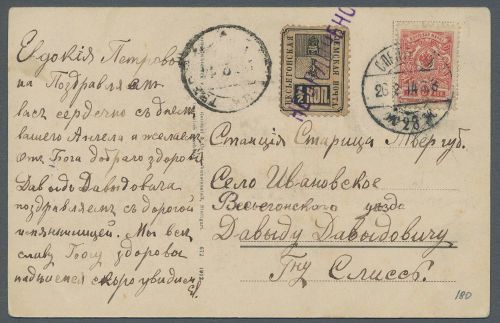 Евдокія Петровна
Поздравляемъ
васъ сердечно съ днемъ
вашего Ангела и желаемъ
отъ Бога добраго здоровія
Давыдъ Давыдовича
поздравляемъ съ дорогой
имянинницей. Мы всѣ
славу Богу здоровы
надѣемся скоро увидеться
ВЕСЬЕГОНСКАЯ
ЗЕМСКАЯ ПОЧТА
КОП
28
Станція Старица Тверь губ.
Село Ивановское
Весьегонского уезда
Давыду Давыдовичу
Гну Слиссъ.
180